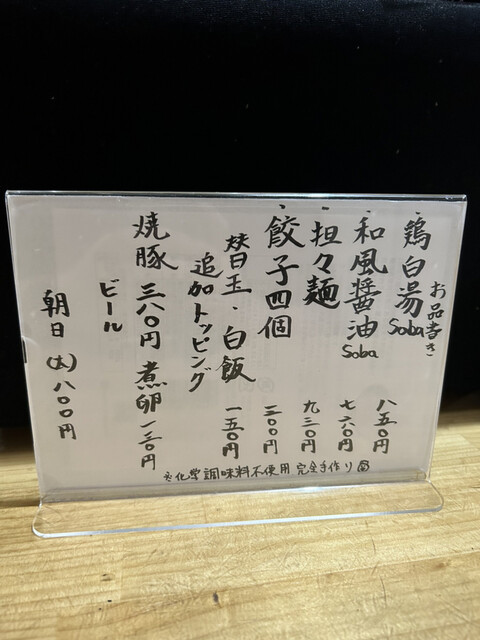 お品書き
・鶏白湯Soba 八五〇円
・和風醤油Soba 七六〇円
・担々麺 九三〇円
・餃子四個 三〇〇円
替玉・白飯 一五〇円
追加トッピング
焼豚 三八〇円 煮卵 一三〇円
ビール
朝日(大)八〇〇円
化学調味料不使用 完全手作り